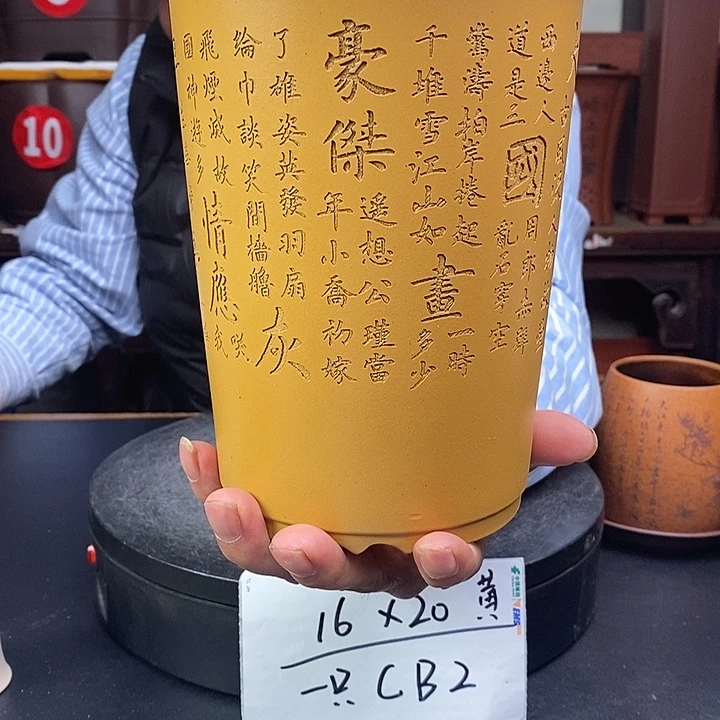 西邊人
道是三
國
周郎赤壁
亂石穿空
驚濤拍岸捲起
千堆雪江山如
畫
一時
多少
豪傑
遙想公瑾當
年小喬初嫁
了雄姿英發羽扇
綸巾談笑間檣艣
灰
飛煙滅故
國神遊多
情應
笑
我
10
16×20 黃
一只 CB2